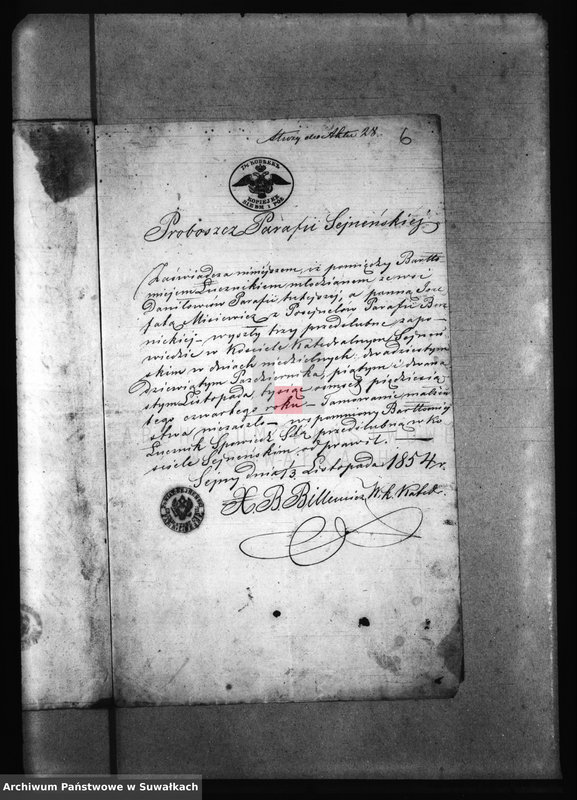 Akcie 28. 6
7½ KOPIEJEK
KOPIEJEK
SIEDM I PÓŁ
Proboszcz Parafii Sejneńskiej
Zaświadcza niniejszem, iż pomiędzy Bartło
miejem Łucznikiem młodzianem ze wsi
Danilowców Parafii tutejszej, a panną Joze
fatą Misiewicz z Posejnelów Parafii Ber
nickiej wyszły trzy przedślubne zapo
wiedzie w Kościele Katedralnym Sejneń
skim w dniach niedzielnych: dwudziestym
dziewiątym Października, piątym i dwuna
stym Listopada tysiąc ośmset pięćdziesią
tego czwartego roku Tamowanie małżeń
stwa niezaszło wspomniony Bartłomiej
Łucznik Spowiedź Stą przedślubną w Ko
ściele Sejneńskim odprawił.
Sejny dnia 13 Listopada 1854 r.
X. B. Billewicz W. k. Kated.
Archiwum Państwowe w Suwałkach